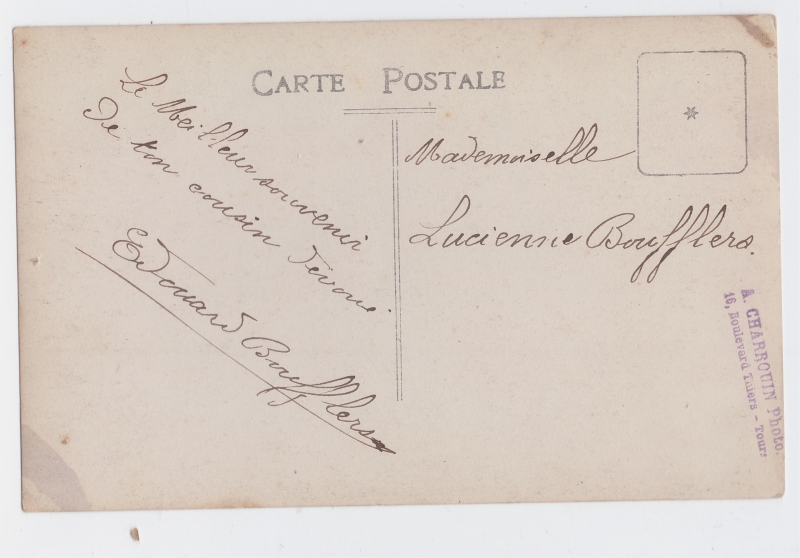 CARTE POSTALE
Le Meilleur souvenir
De ton cousin Dévoué
Edouard Boufflers
Mademoiselle
Lucienne Boufflers.
A. CHARROUIN Photo.
16, Boulevard Thiers - Tours